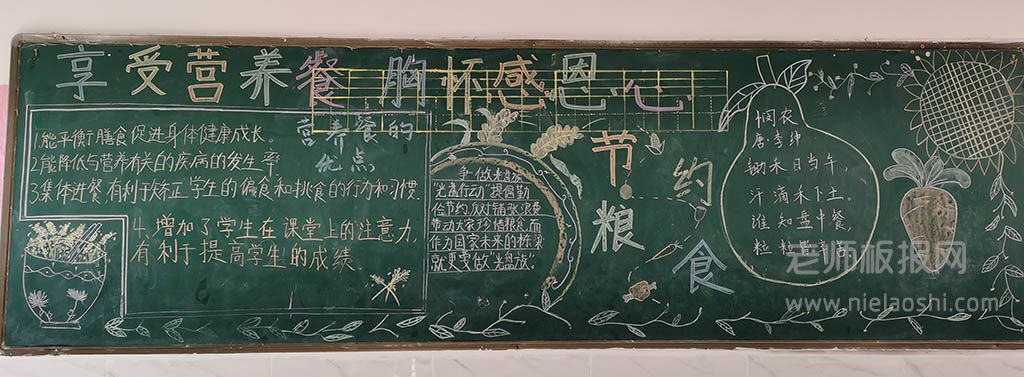 享受营养餐 胸怀感恩心
营养餐的
优点
1.能平衡膳食促进身体健康成长。
2.能降低与营养有关的疾病的发生率
3.集体进餐,有利于矫正学生的偏食和挑食的行为和习惯.
4.增加了学生在课堂上的注意力,
有利于提高学生的成绩
争做
"光盘行动"提倡勤
俭节约,反对铺张浪费
带动大家珍惜粮食,而
作为国家未来的栋梁
就更要做"光盘族"。
节约
粮食
悯农
唐 李绅
锄禾日当午,
汗滴禾下土。
谁知盘中餐,
粒粒
老师板报网
www.nielaoshi.com